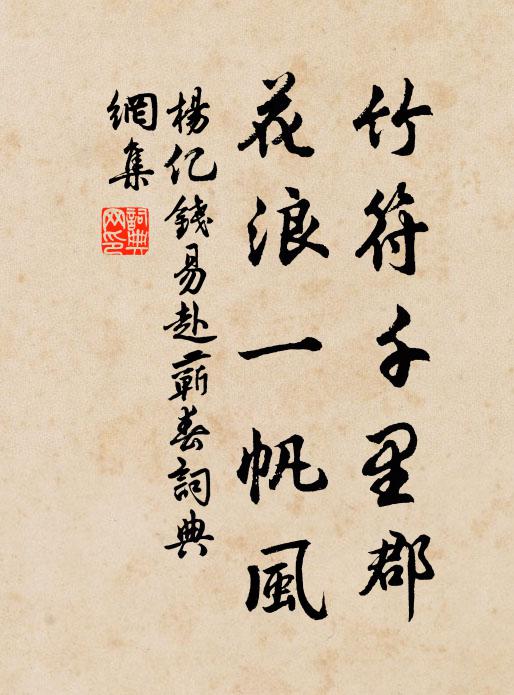 竹符千里郡
花浪一帆風
楊億錢易赴蘄春詞典
網集
詞典
网印